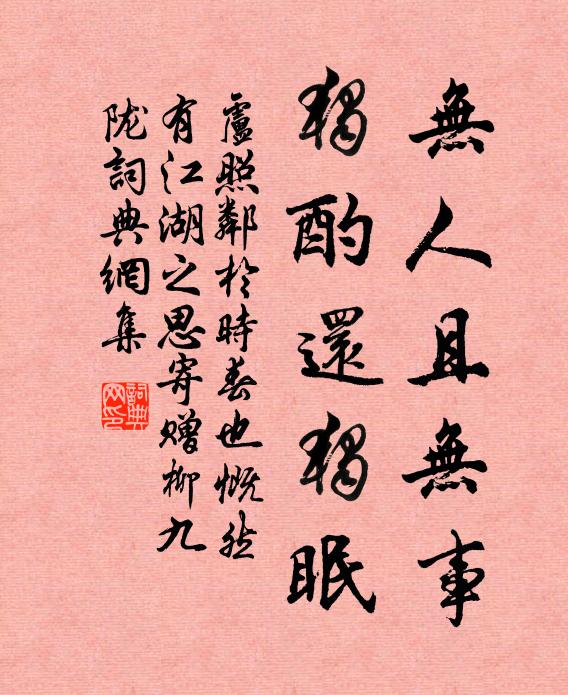 無人且無事
獨酌還獨眠
盧照鄰於時春也慨然
有江湖之思寄贈柳九
陇詞典網集
詞典
网印